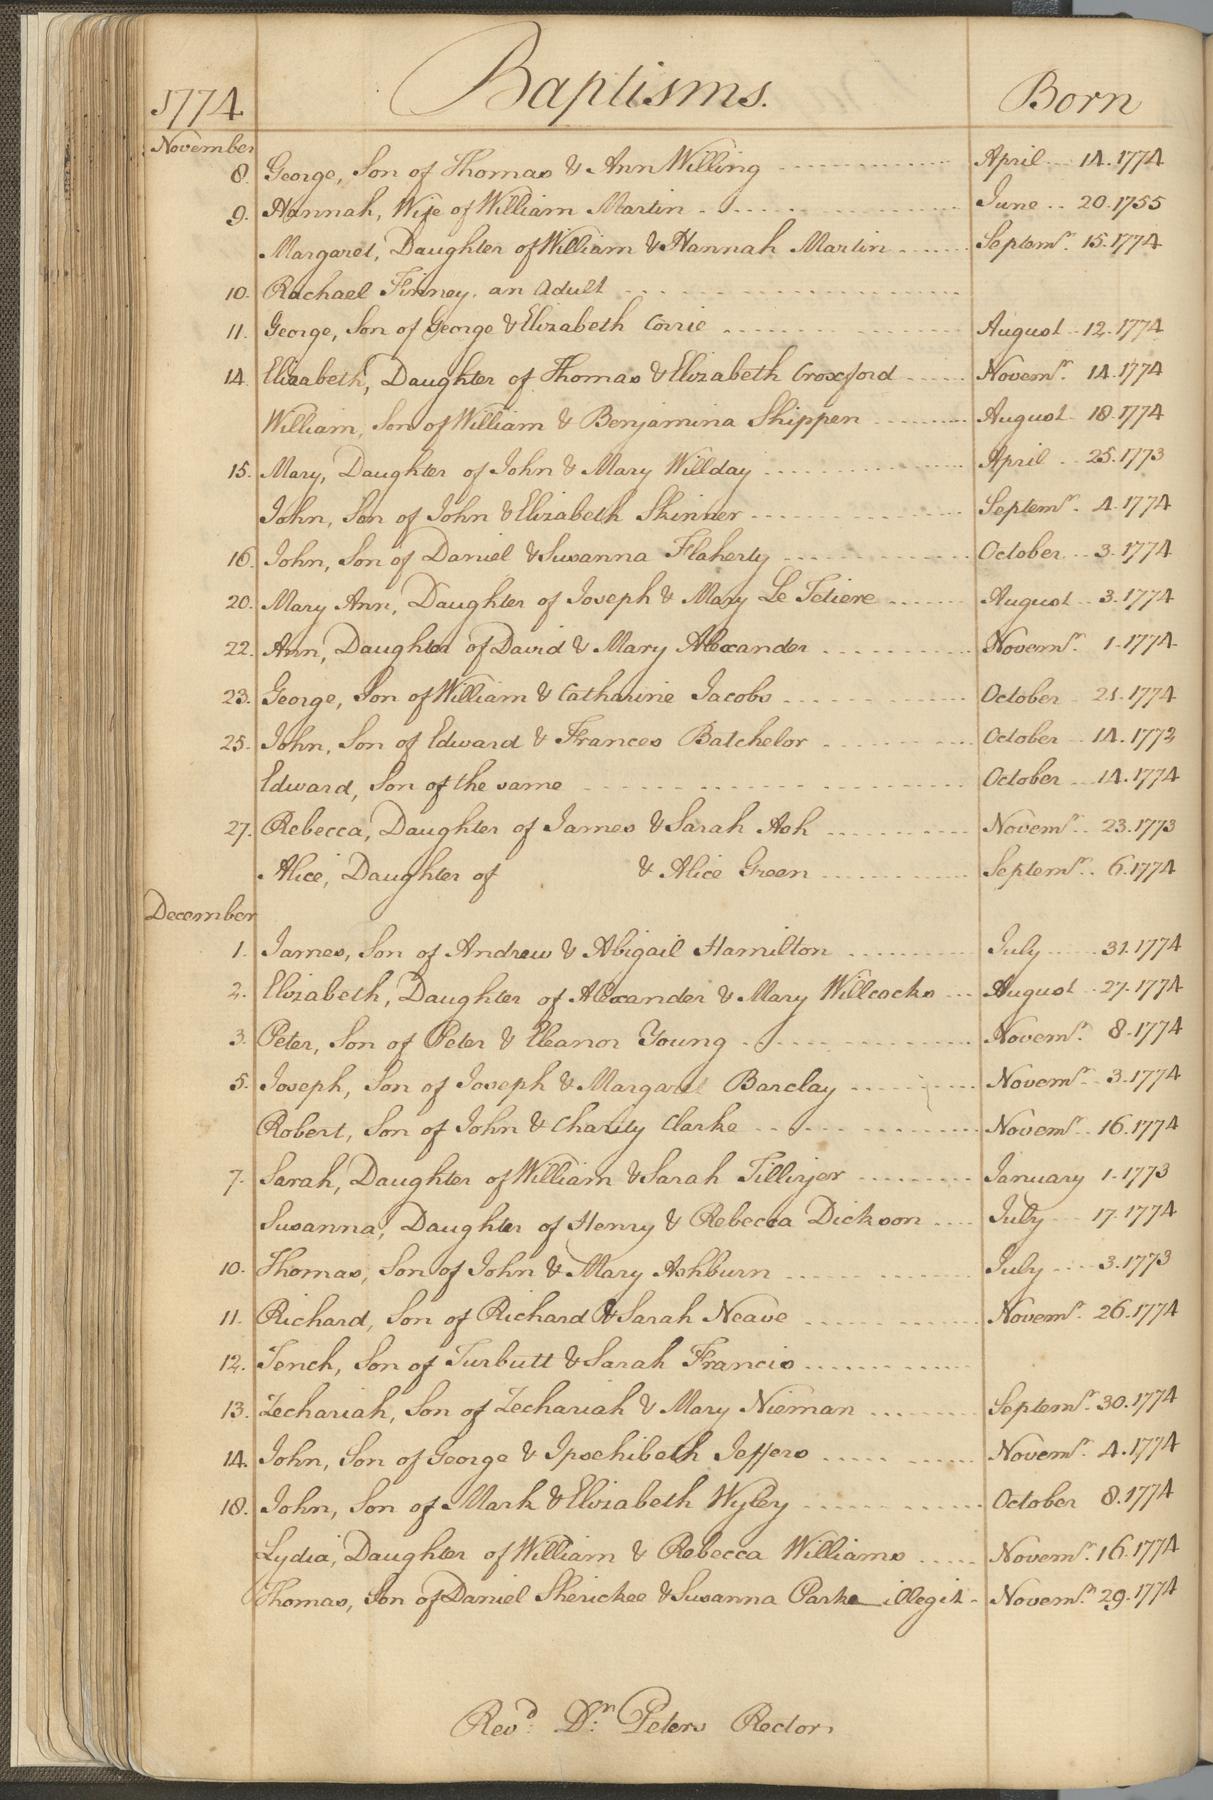 1774 Baptisms. Born
November
8. George, Son of Thomas & Ann Willing April 14. 1774
9. Hannah, Wife of William Martin June 20. 1755
Margaret, Daughter of William & Hannah Martin Septemr. 15. 1774
10. Rachael Finney. an Adult
11. George, Son of George & Elizabeth Corrie August 12. 1774
14. Elizabeth, Daughter of Thomas & Elizabeth Croxford Novemr. 14. 1774
William, Son of William & Benjamina Shippen August 18. 1774
15. Mary, Daughter of John & Mary Willday April 25. 1773
John, Son of John & Elizabeth Skinner Septemr. 4. 1774
16. John, Son of Daniel & Susanna Flaherty October 3. 1774
20. Mary Ann, Daughter of Joseph & Mary Le Tetiere August 3. 1774
22. Ann, Daughter of David & Mary Alexander Novemr. 1. 1774
23. George, Son of William & Catharine Jacobs October 21. 1774
25. John, Son of Edward & Frances Batchelor October 14. 1772
Edward, Son of the same October 14. 1774
27. Rebecca, Daughter of James & Sarah Ash Novemr. 23. 1773
Alice, Daughter of & Alice Green Septemr. 6. 1774
December
1. James, Son of Andrew & Abigail Hamilton July 31. 1774
2. Elizabeth, Daughter of Alexander & Mary Willcocks August 27. 1774
3. Peter, Son of Peter & Eleanor Young Novemr. 8. 1774
5. Joseph, Son of Joseph & Margaret Barclay Novemr. 3. 1774
Robert, Son of John & Charity Clarke Novemr. 16. 1774
7. Sarah, Daughter of William & Sarah Tillinjer January 1. 1773
Susanna, Daughter of Henry & Rebecca Dickson July 17. 1774
10. Thomas, Son of John & Mary Ashburn July 3. 1773
11. Richard, Son of Richard & Sarah Neave Novemr. 26. 1774
12. Tench, Son of Turbutt & Sarah Francis
13. Zechariah, Son of Zechariah & Mary Nieman Septemr. 30. 1774
14. John, Son of George & Ipschibeth Jeffers Novemr. 4. 1774
18. John, Son of Mark & Elizabeth Wyley October 8. 1774
Lydia, Daughter of William & Rebecca Williams Novemr. 16. 1774
Thomas, Son of Daniel Sherickee & Susanna Parke illegit. Novemr. 29. 1774
Revd. Dr. Peters Rector.